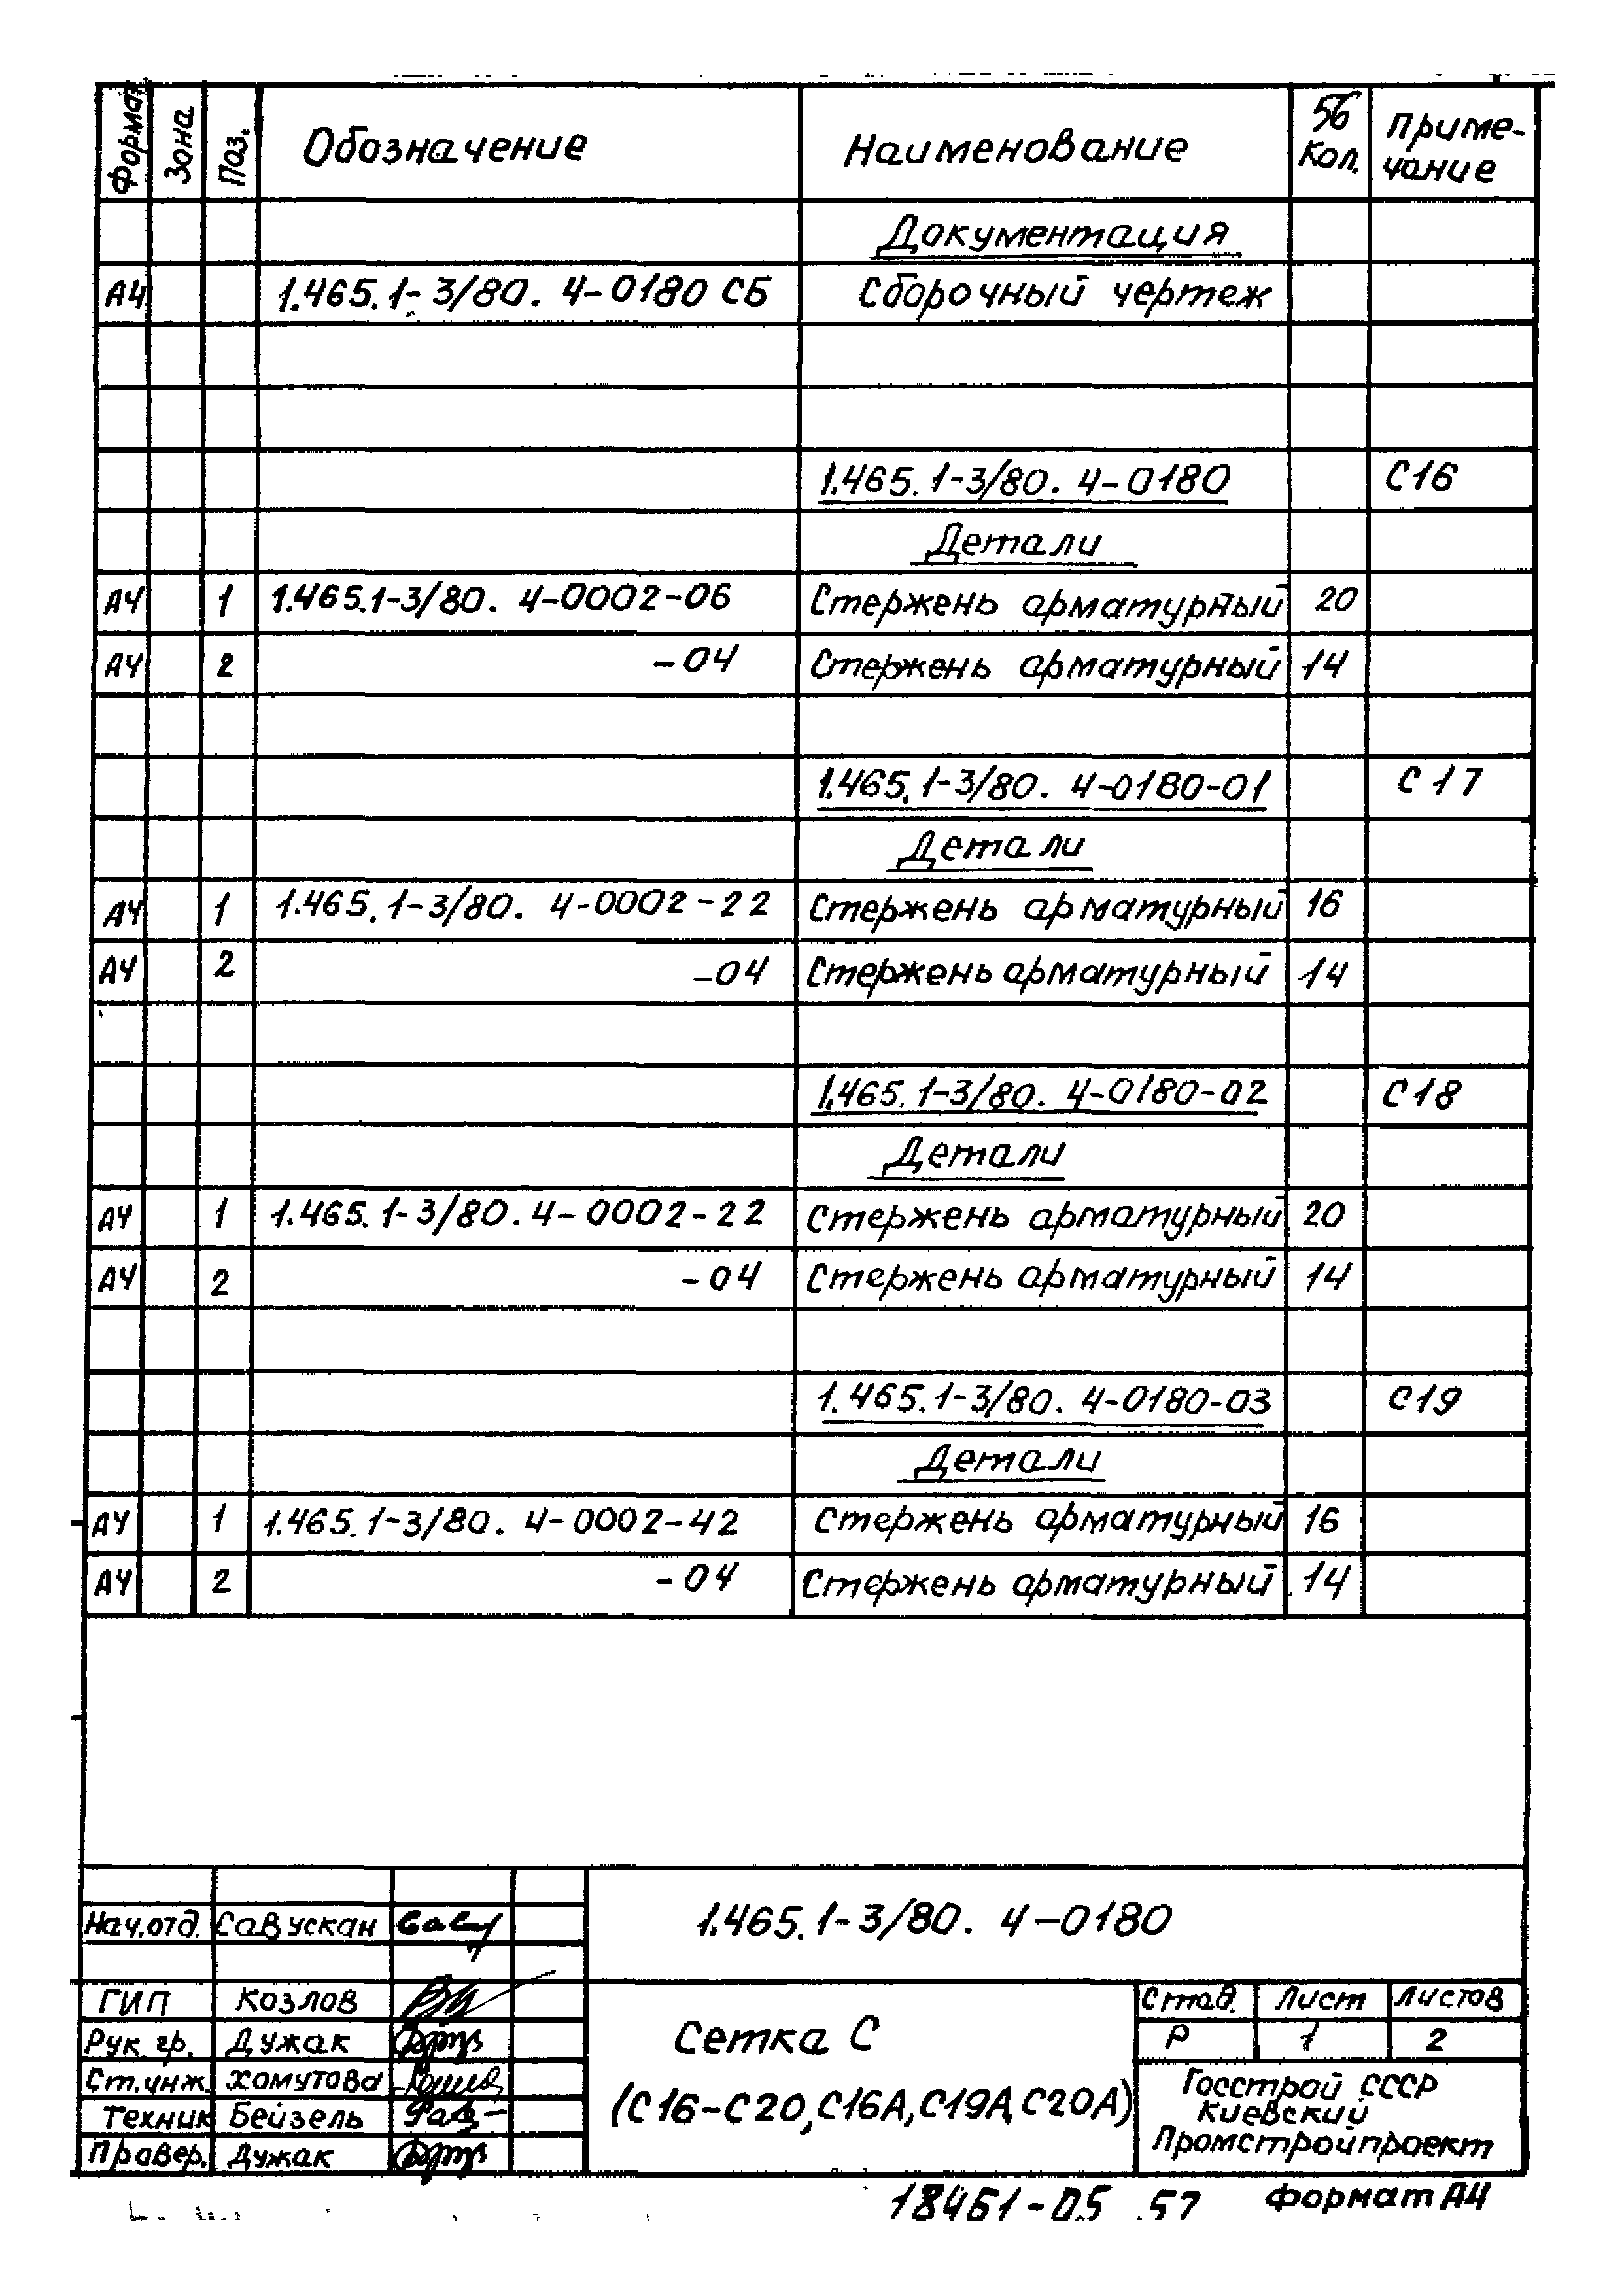 Формат Зона Поз. Обозначение Наименование 56 Кол. Примечание
Документация
А4 1.465.1-3/80. 4-0180 СБ Сборочный чертеж
1.465.1-3/80. 4-0180 С16
Детали
А4 1 1.465.1-3/80. 4-0002-06 Стержень арматурный 20
А4 2 -04 Стержень арматурный 14
1.465.1-3/80. 4-0180-01 С17
Детали
А4 1 1.465.1-3/80. 4-0002-22 Стержень арматурный 16
А4 2 -04 Стержень арматурный 14
1.465.1-3/80. 4-0180-02 С18
Детали
А4 1 1.465.1-3/80. 4-0002-22 Стержень арматурный 20
А4 2 -04 Стержень арматурный 14
1.465.1-3/80. 4-0180-03 С19
Детали
А4 1 1.465.1-3/80. 4-0002-42 Стержень арматурный 16
А4 2 -04 Стержень арматурный 14
Нач.отд. Савускан
1.465.1-3/80. 4-0180
ГИП Козлов
Рук. гр. Дужак
Ст.инж. Хомутова
Техник Бейзель
Провер. Дужак
Сетка С
(С16-С20, С16А, С19А, С20А)
Стад. Лист Листов
Р 1 2
Госстрой СССР
Киевский
Промстройпроект
18461-05 57 Формат А4